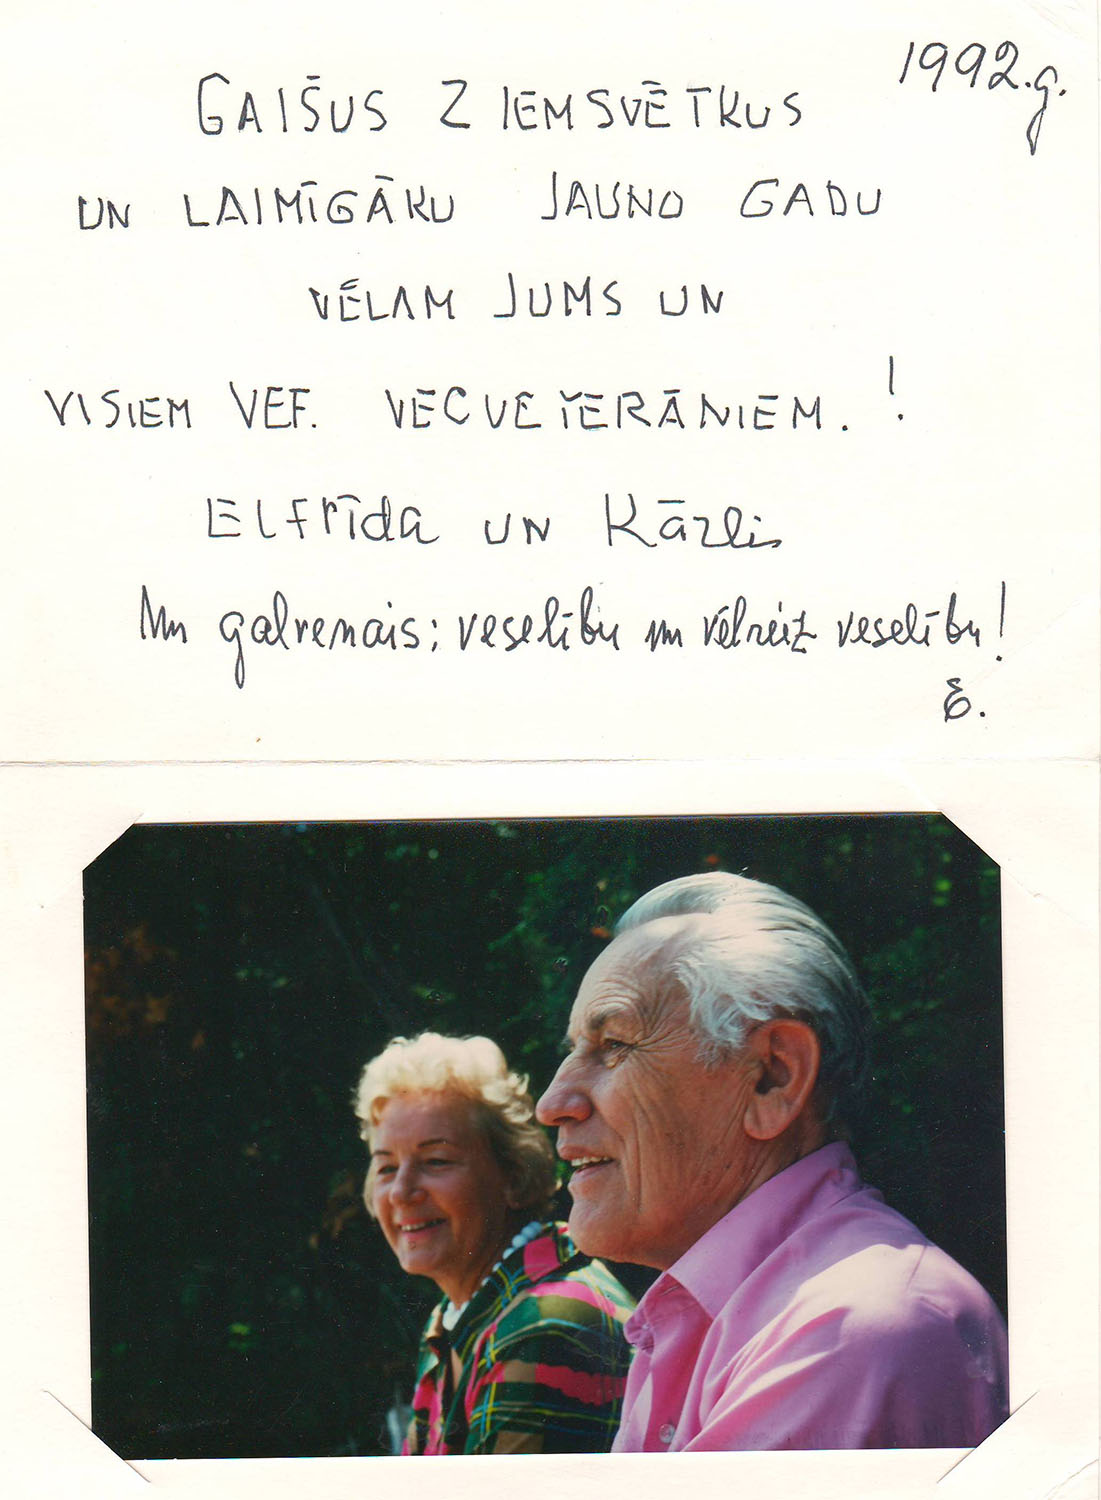 1992.g.
GAIŠUS ZIEMSVĒTKUS
UN LAIMĪGĀKU JAUNO GADU
VĒLAM JUMS UN
VISIEM VEF. VECVETERĀNIEM. !
Elfrīda UN Kārlis
Un galvenais: veselību un vēlreiz veselību!
E.